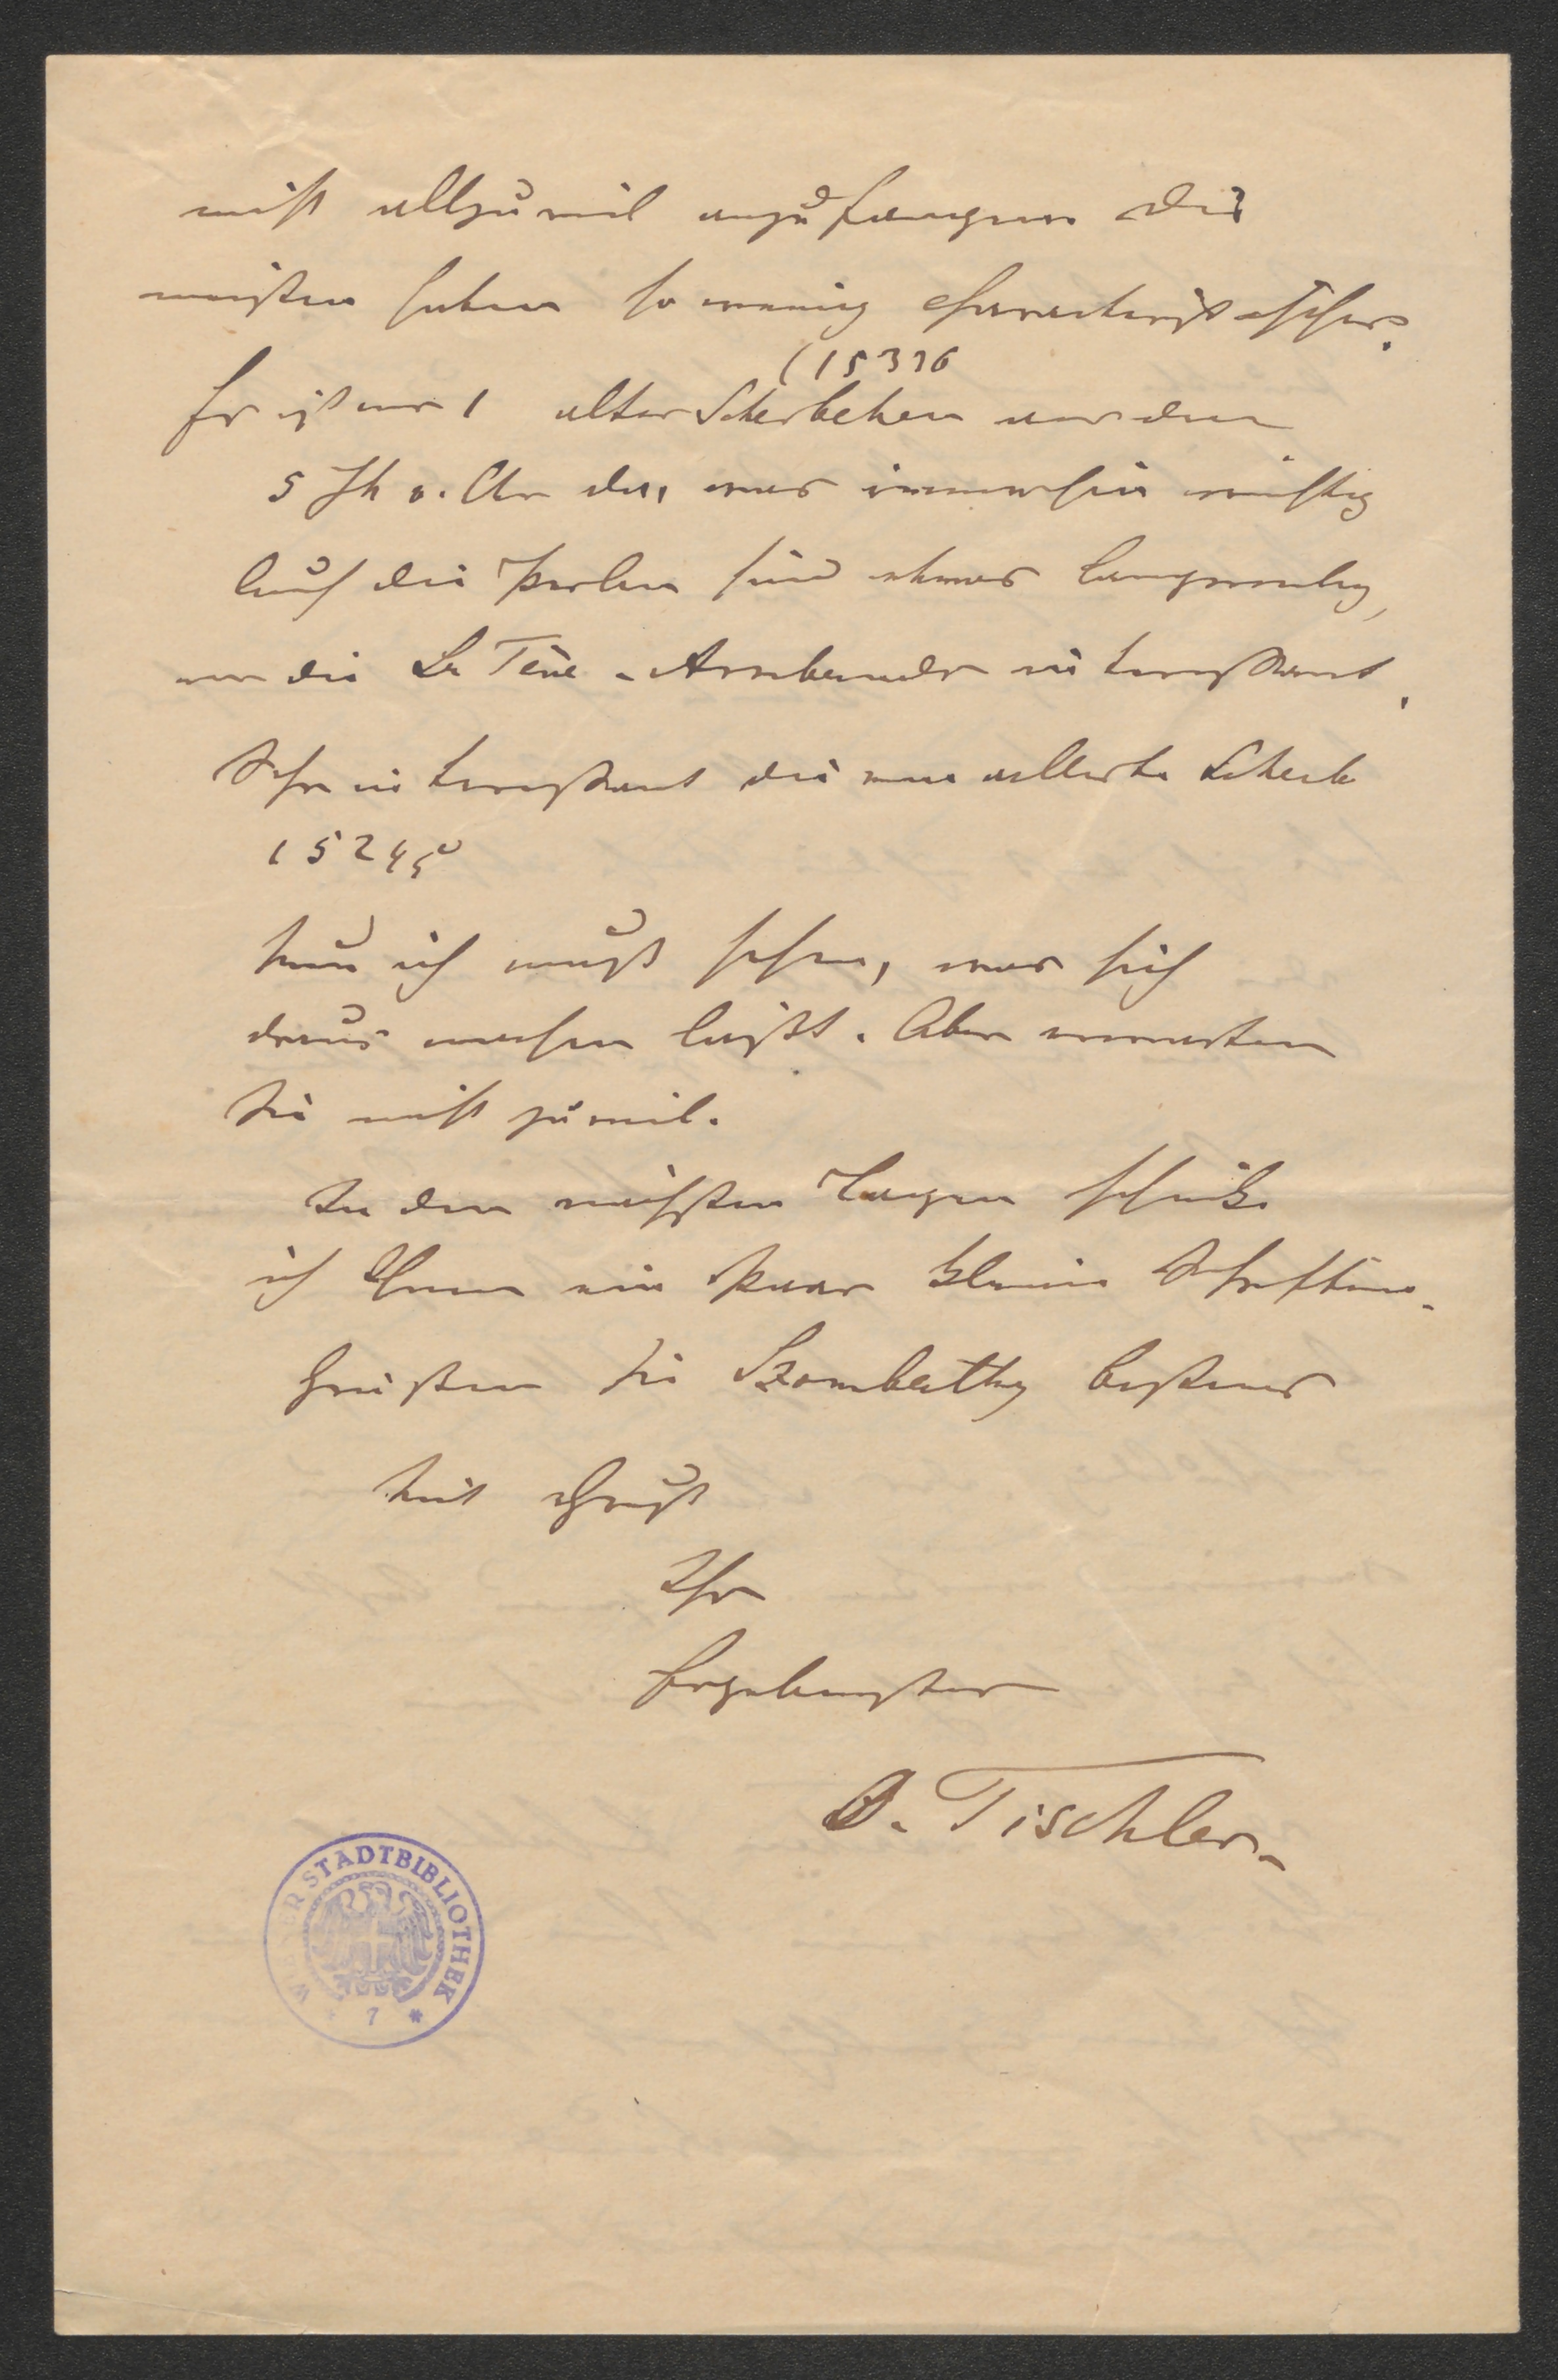 nicht allzuviel anzufangen die
meisten haben so wenig charakteristisches.
(15336
Es ist nur 1 altes Scherbchen aus dem
5 Jh v. Chr da, was immerhin wichtig
Auch die Perlen sind etwas langweilig,
nur die La Tène-Armbänder interessant.
Sehr interessant die emaillirte Scheibe
15245
Nun ich muß sehen, was sich
draus machen läßt. Aber erwarten
Sie nicht zuviel.
In den nächsten Tagen schicke
ich Ihnen ein Paar kleine Schriften.
Grüßen Sie Szombathy bestens
Mit Gruß
Ihr
Ergebenster
O. Tischler.
WIENER STADTBIBLIOTHEK
* 7 *